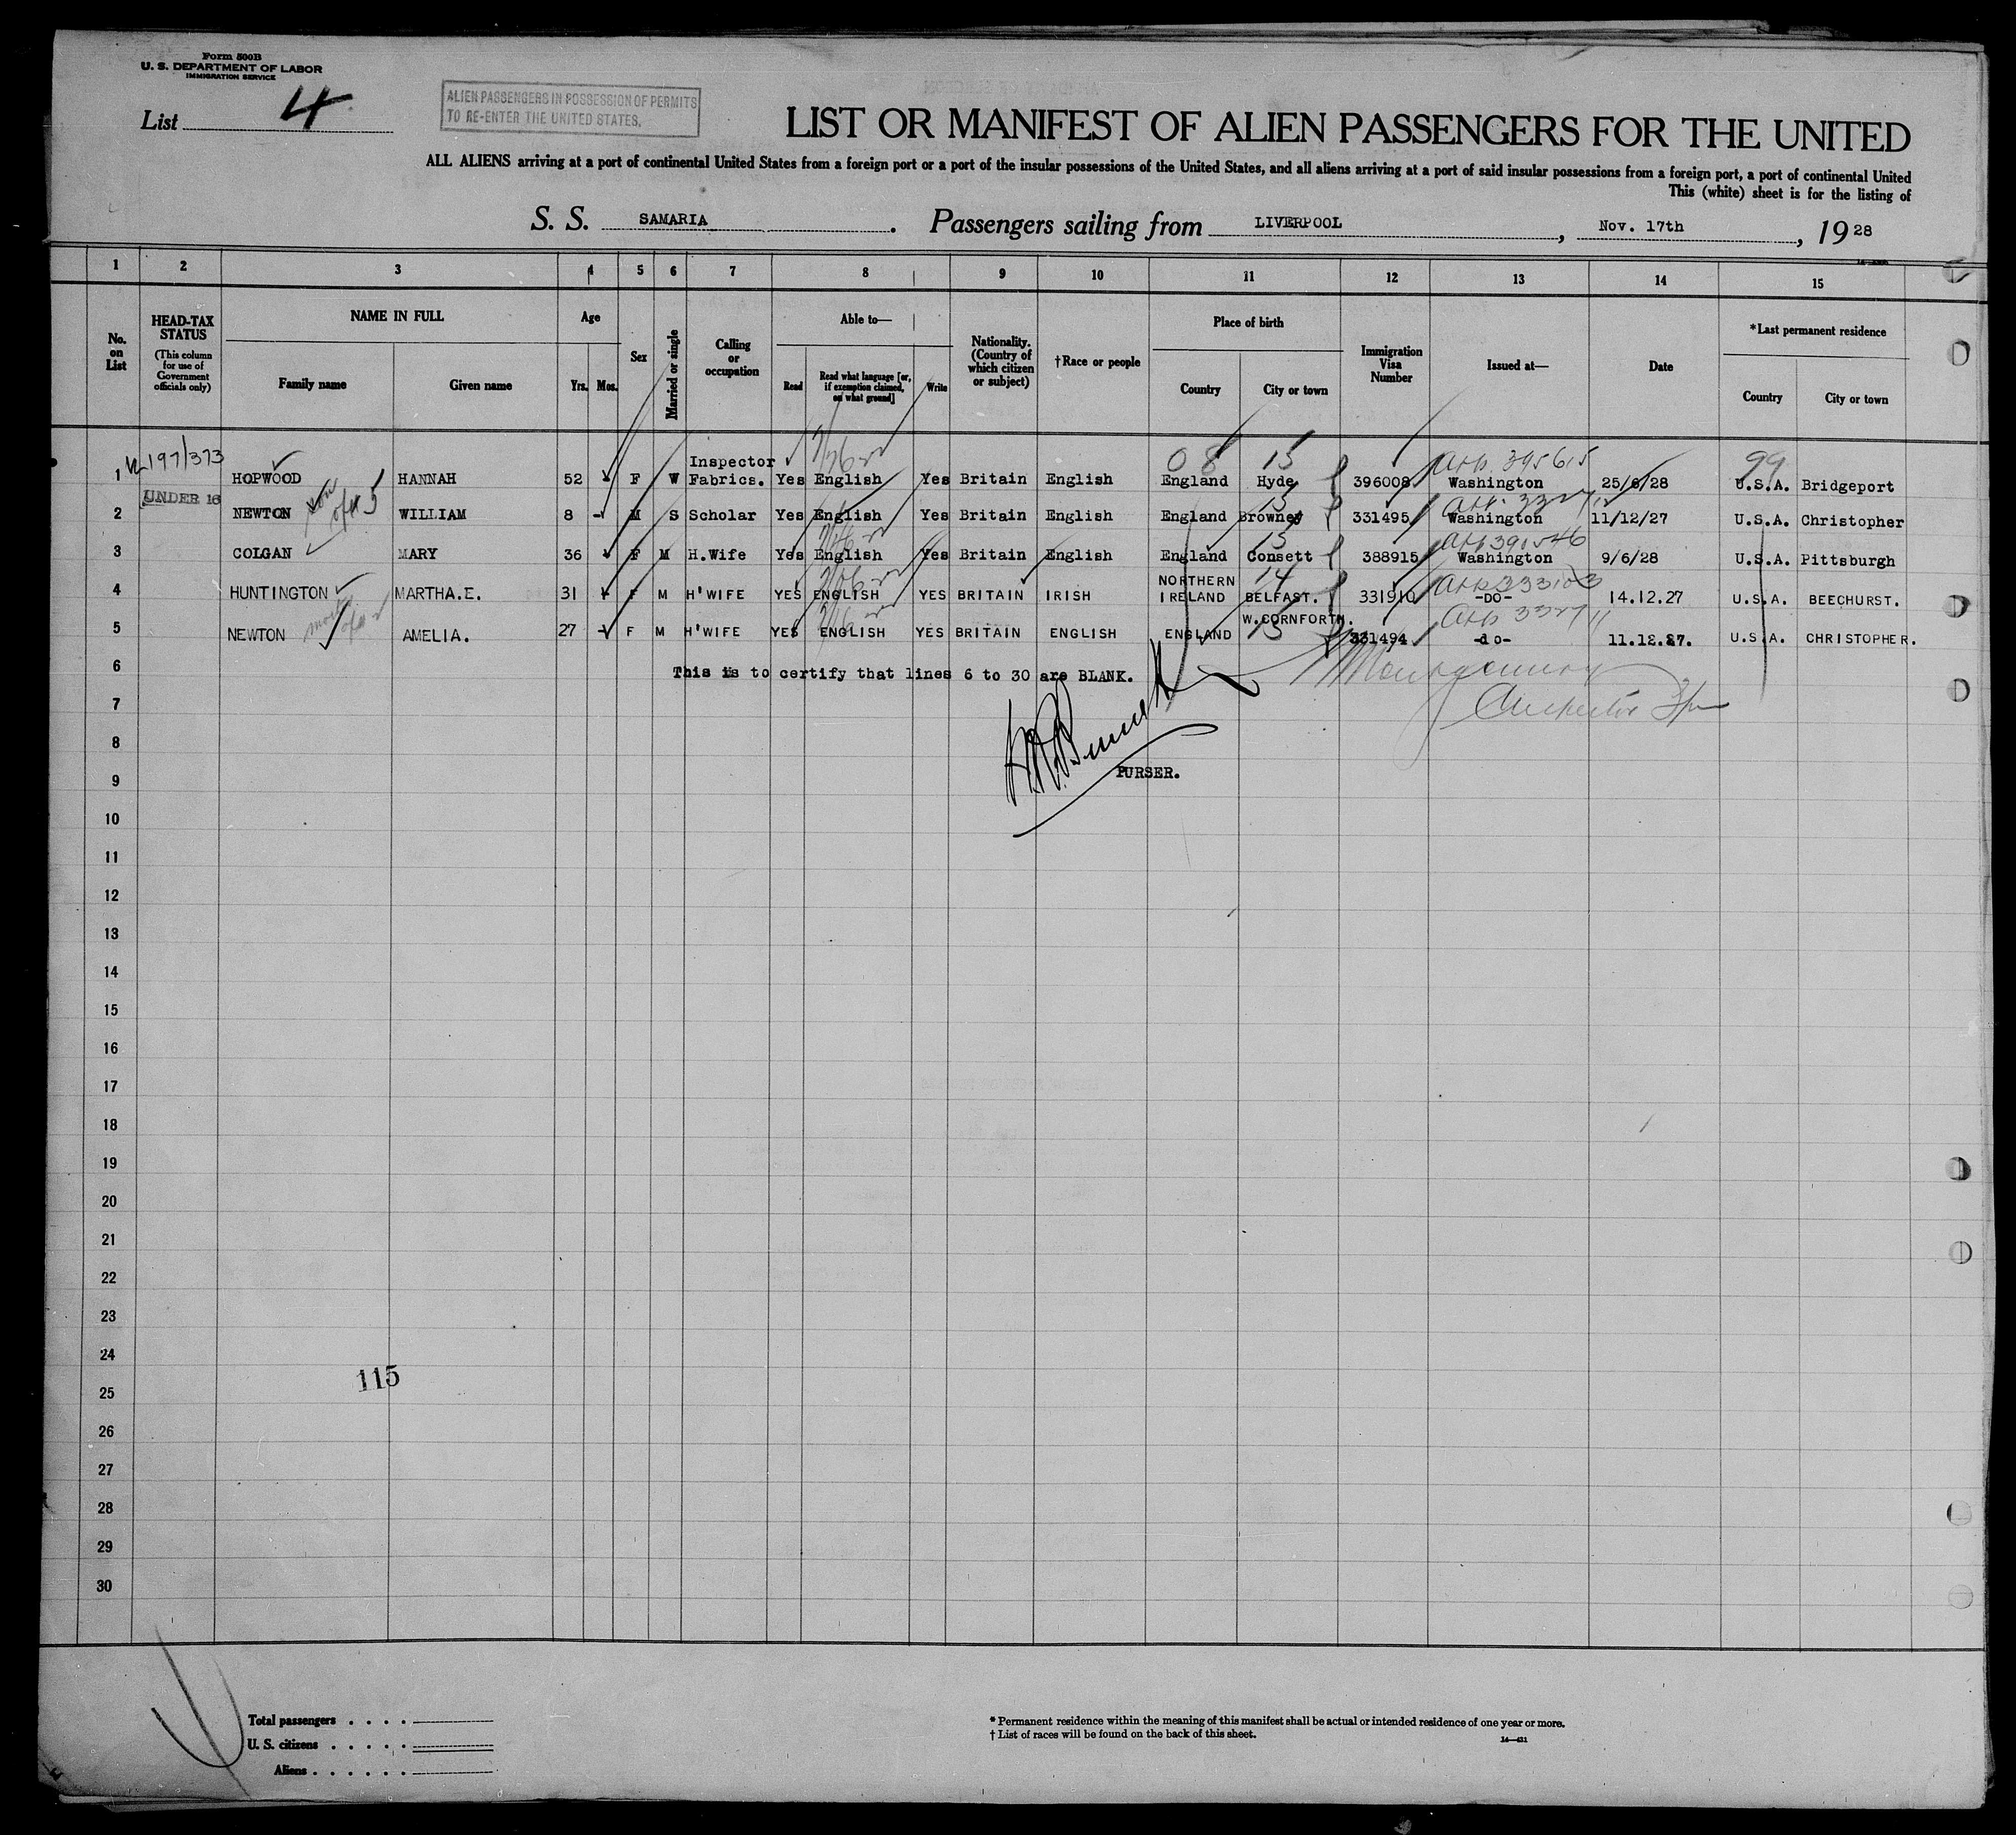 Form 500B
U. S. DEPARTMENT OF LABOR
IMMIGRATION SERVICE
List 4
ALIEN PASSENGERS IN POSSESSION OF PERMITS
TO RE-ENTER THE UNITED STATES.
LIST OR MANIFEST OF ALIEN PASSENGERS FOR THE UNITED
ALL ALIENS arriving at a port of continental United States from a foreign port or a port of the insular possessions of the United States, and all aliens arriving at a port of said insular possessions from a foreign port, a port of continental United
This (white) sheet is for the listing of
S. S. SAMARIA. Passengers sailing from LIVERPOOL, Nov. 17th, 1928
1 2 3 4 5 6 7 8 9 10 11 12 13 14 15
No. on List
HEAD-TAX STATUS
(This column for use of Government officials only)
NAME IN FULL
Family name
Given name
Age
Yrs. Mos.
Sex
Married or single
Calling or occupation
Able to—
Read
Read what language [or, if exemption claimed, on what ground]
Write
Nationality. (Country of which citizen or subject)
†Race or people
Place of birth
Country
City or town
Immigration Visa Number
Issued at—
Date
*Last permanent residence
Country
City or town
197/373 08 15 395615 99
1 HOPWOOD HANNAH 52 F W Inspector Fabrics. Yes English Yes Britain English England Hyde 396008 Washington 25/6/28 U.S.A. Bridgeport
UNDER 16 son of #5 15
2 NEWTON WILLIAM 8 - M S Scholar Yes English Yes Britain English England Browney 331495 Washington 11/12/27 U.S.A. Christopher
15 391546
3 COLGAN MARY 36 F M H.Wife Yes English Yes Britain English England Consett 388915 Washington 9/6/28 U.S.A. Pittsburgh
14 333103
4 HUNTINGTON MARTHA.E. 31 F M H'WIFE YES ENGLISH YES BRITAIN IRISH NORTHERN IRELAND BELFAST. 331910 -DO- 14.12.27 U.S.A. BEECHURST.
15 332711
5 NEWTON AMELIA. 27 - F M H'WIFE YES ENGLISH YES BRITAIN ENGLISH ENGLAND W.CORNFORTH. 331494 -do- 11.12.27. U.S.A. CHRISTOPHER.
6 This is to certify that lines 6 to 30 are BLANK. Montgomery
7
8
9 PURSER.
10
11
12
13
14
15
16
17
18
19
20
21
22
23
24
115
25
26
27
28
29
30
Total passengers . . . .
U. S. citizens . . . . .
Aliens . . . . . .
* Permanent residence within the meaning of this manifest shall be actual or intended residence of one year or more.
† List of races will be found on the back of this sheet.
14—431